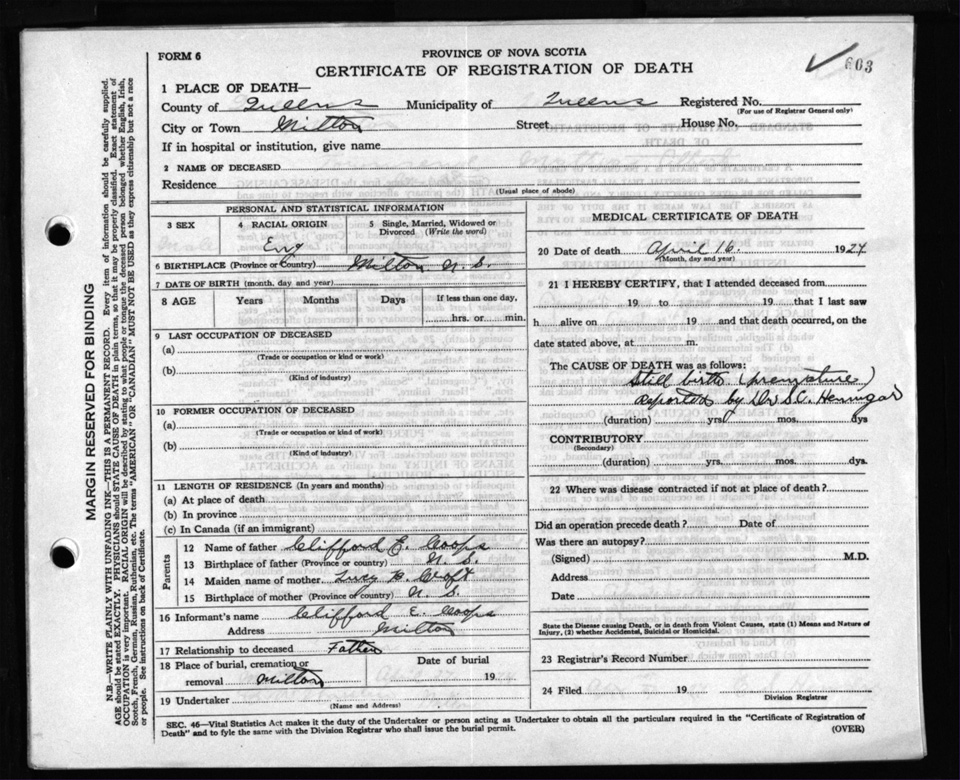 FORM 6
PROVINCE OF NOVA SCOTIA
CERTIFICATE OF REGISTRATION OF DEATH
603
1 PLACE OF DEATH—
County of Queens Municipality of Queens Registered No.
(For use of Registrar General only)
City or Town Milton Street House No.
If in hospital or institution, give name
2 NAME OF DECEASED
Residence
(Usual place of abode)
PERSONAL AND STATISTICAL INFORMATION
3 SEX 4 RACIAL ORIGIN 5 Single, Married, Widowed or Divorced (Write the word)
Eng
6 BIRTHPLACE (Province or Country) Milton N. S.
7 DATE OF BIRTH (month, day and year)
8 AGE Years Months Days If less than one day,
hrs. or min.
9 LAST OCCUPATION OF DECEASED
(a)
(Trade or occupation or kind or work)
(b)
(Kind of industry)
10 FORMER OCCUPATION OF DECEASED
(a)
(Trade or occupation or kind of work)
(b)
(Kind of industry)
11 LENGTH OF RESIDENCE (In years and months)
(a) At place of death
(b) In province
(c) In Canada (if an immigrant)
Parents
12 Name of father Clifford E. Coops
13 Birthplace of father (Province or country) N. S.
14 Maiden name of mother Lucy B. Croft
15 Birthplace of mother (Province or country) N. S.
16 Informant's name Clifford E. Coops
Address Milton
17 Relationship to deceased Father
18 Place of burial, cremation or Date of burial
removal Milton 19
19 Undertaker
(Name and Address)
MEDICAL CERTIFICATE OF DEATH
20 Date of death April 16. 1924
(Month, day and year)
21 I HEREBY CERTIFY, that I attended deceased from
19 to 19 that I last saw
h alive on 19 and that death occurred, on the
date stated above, at m.
The CAUSE OF DEATH was as follows:
Still birth (premature)
Reported by Dr S. C. Hennigar
(duration) yrs. mos. dys
CONTRIBUTORY
(Secondary)
(duration) yrs. mos. dys.
22 Where was disease contracted if not at place of death?
Did an operation precede death? Date of
Was there an autopsy?
(Signed) M.D.
Address
Date
State the Disease causing Death, or in death from Violent Causes, state (1) Means and Nature of
Injury, (2) whether Accidental, Suicidal or Homicidal.
23 Registrar's Record Number
24 Filed 19
Division Registrar
SEC. 46—Vital Statistics Act makes it the duty of the Undertaker or person acting as Undertaker to obtain all the particulars required in the "Certificate of Registration of
Death" and to fyle the same with the Division Registrar who shall issue the burial permit. (OVER)
MARGIN RESERVED FOR BINDING
N.B.—WRITE PLAINLY WITH UNFADING INK—THIS IS A PERMANENT RECORD. Every item of information should be carefully supplied.
AGE should be stated EXACTLY. PHYSICIANS should STATE CAUSE OF DEATH in plain terms, so that it may be properly classified. Exact statement of
OCCUPATION is very important. RACIAL ORIGIN will be described by stating to what people or tongue the deceased person belonged whether English, Irish,
Scotch, French, German, Russian, Ruthenian, etc. The terms "AMERICAN" OR "CANADIAN" MUST NOT BE USED as they express citizenship but not a race
or people. See instructions on back of Certificate.